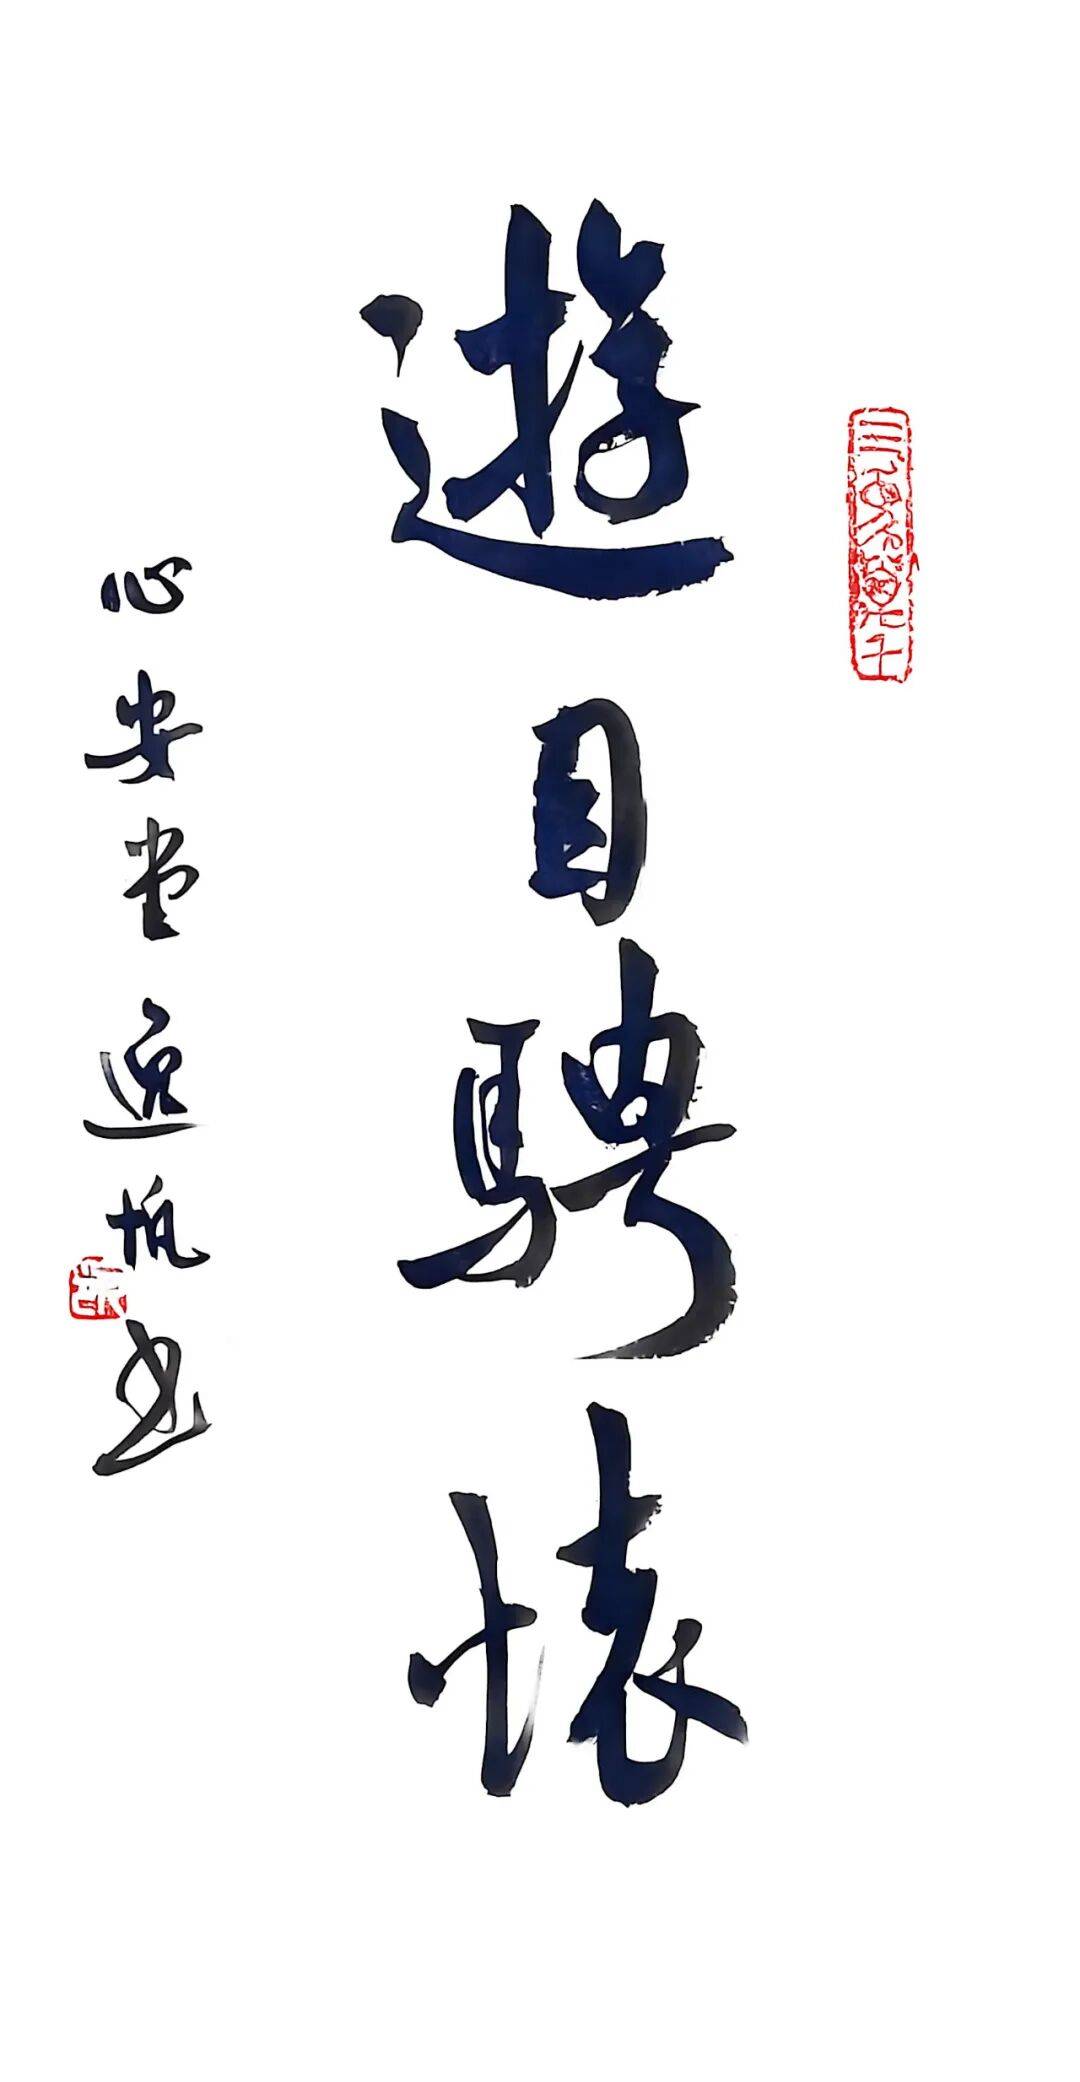 遊目騁懷
心安堂逸帆書